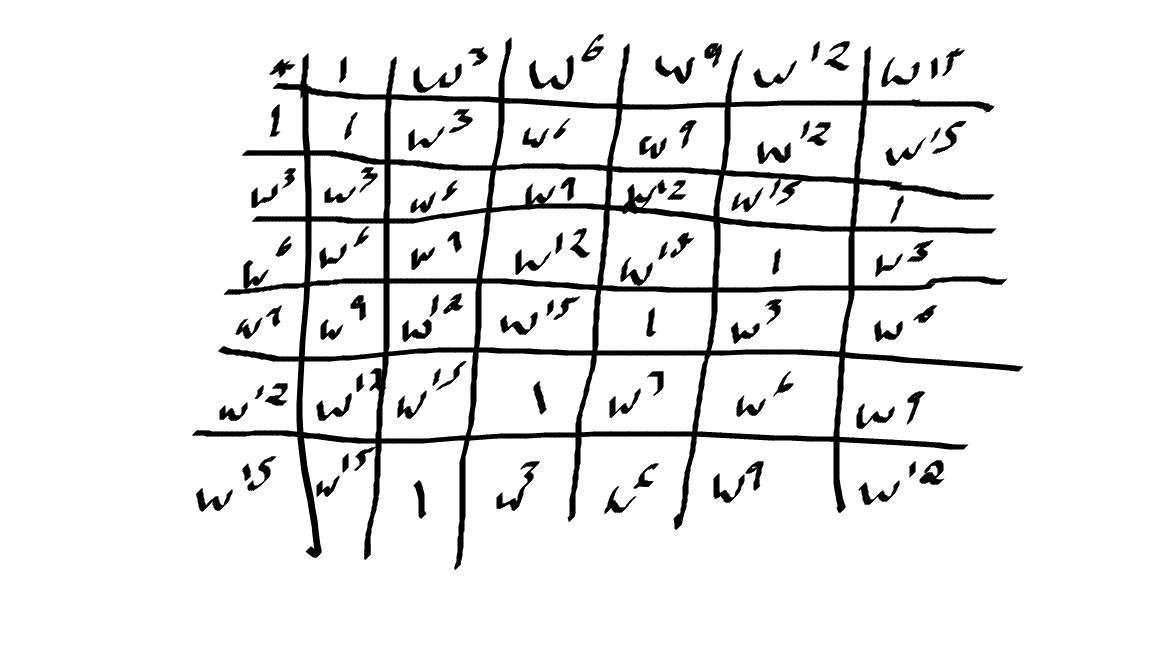 * 1 w³ w⁶ w⁹ w¹² w¹⁵
1 1 w³ w⁶ w⁹ w¹² w¹⁵
w³ w³ w⁶ w⁹ w¹² w¹⁵ 1
w⁶ w⁶ w⁹ w¹² w¹⁵ 1 w³
w⁹ w⁹ w¹² w¹⁵ 1 w³ w⁶
w¹² w¹² w¹⁵ 1 w³ w⁶ w⁹
w¹⁵ w¹⁵ 1 w³ w⁶ w⁹ w¹²